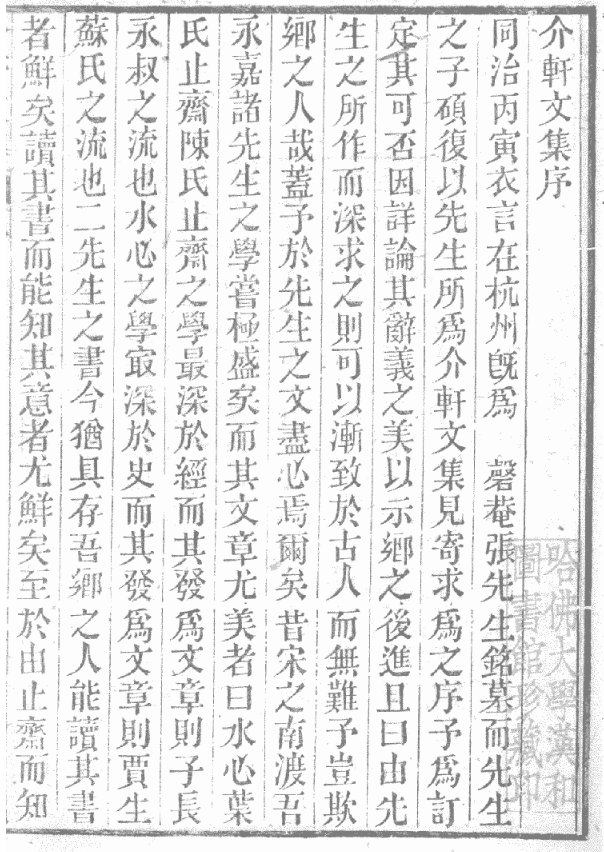 介軒文集序
同治丙寅衣言在杭州旣爲 磬菴張先生銘墓而先生
之子碩復以先生所爲介軒文集見寄求爲之序予爲訂
定其可否因詳論其辭義之美以示鄉之後進且曰由先
生之所作而深求之則可以漸致於古人而無難予豈欺
鄉之人哉蓋予於先生之文盡心焉爾矣昔宋之南渡吾
永嘉諸先生之學嘗極盛矣而其文章尤美者曰水心葉
氏止齋陳氏止齋之學最深於經而其發爲文章則子長
永叔之流也水心之學㝡深於史而其發爲文章則賈生
蘇氏之流也二先生之書今猶具存吾鄉之人能讀其書
者鮮矣讀其書而能知其意者尤鮮矣至於由止齋而知
哈佛大學漢和
圖書館珍藏印